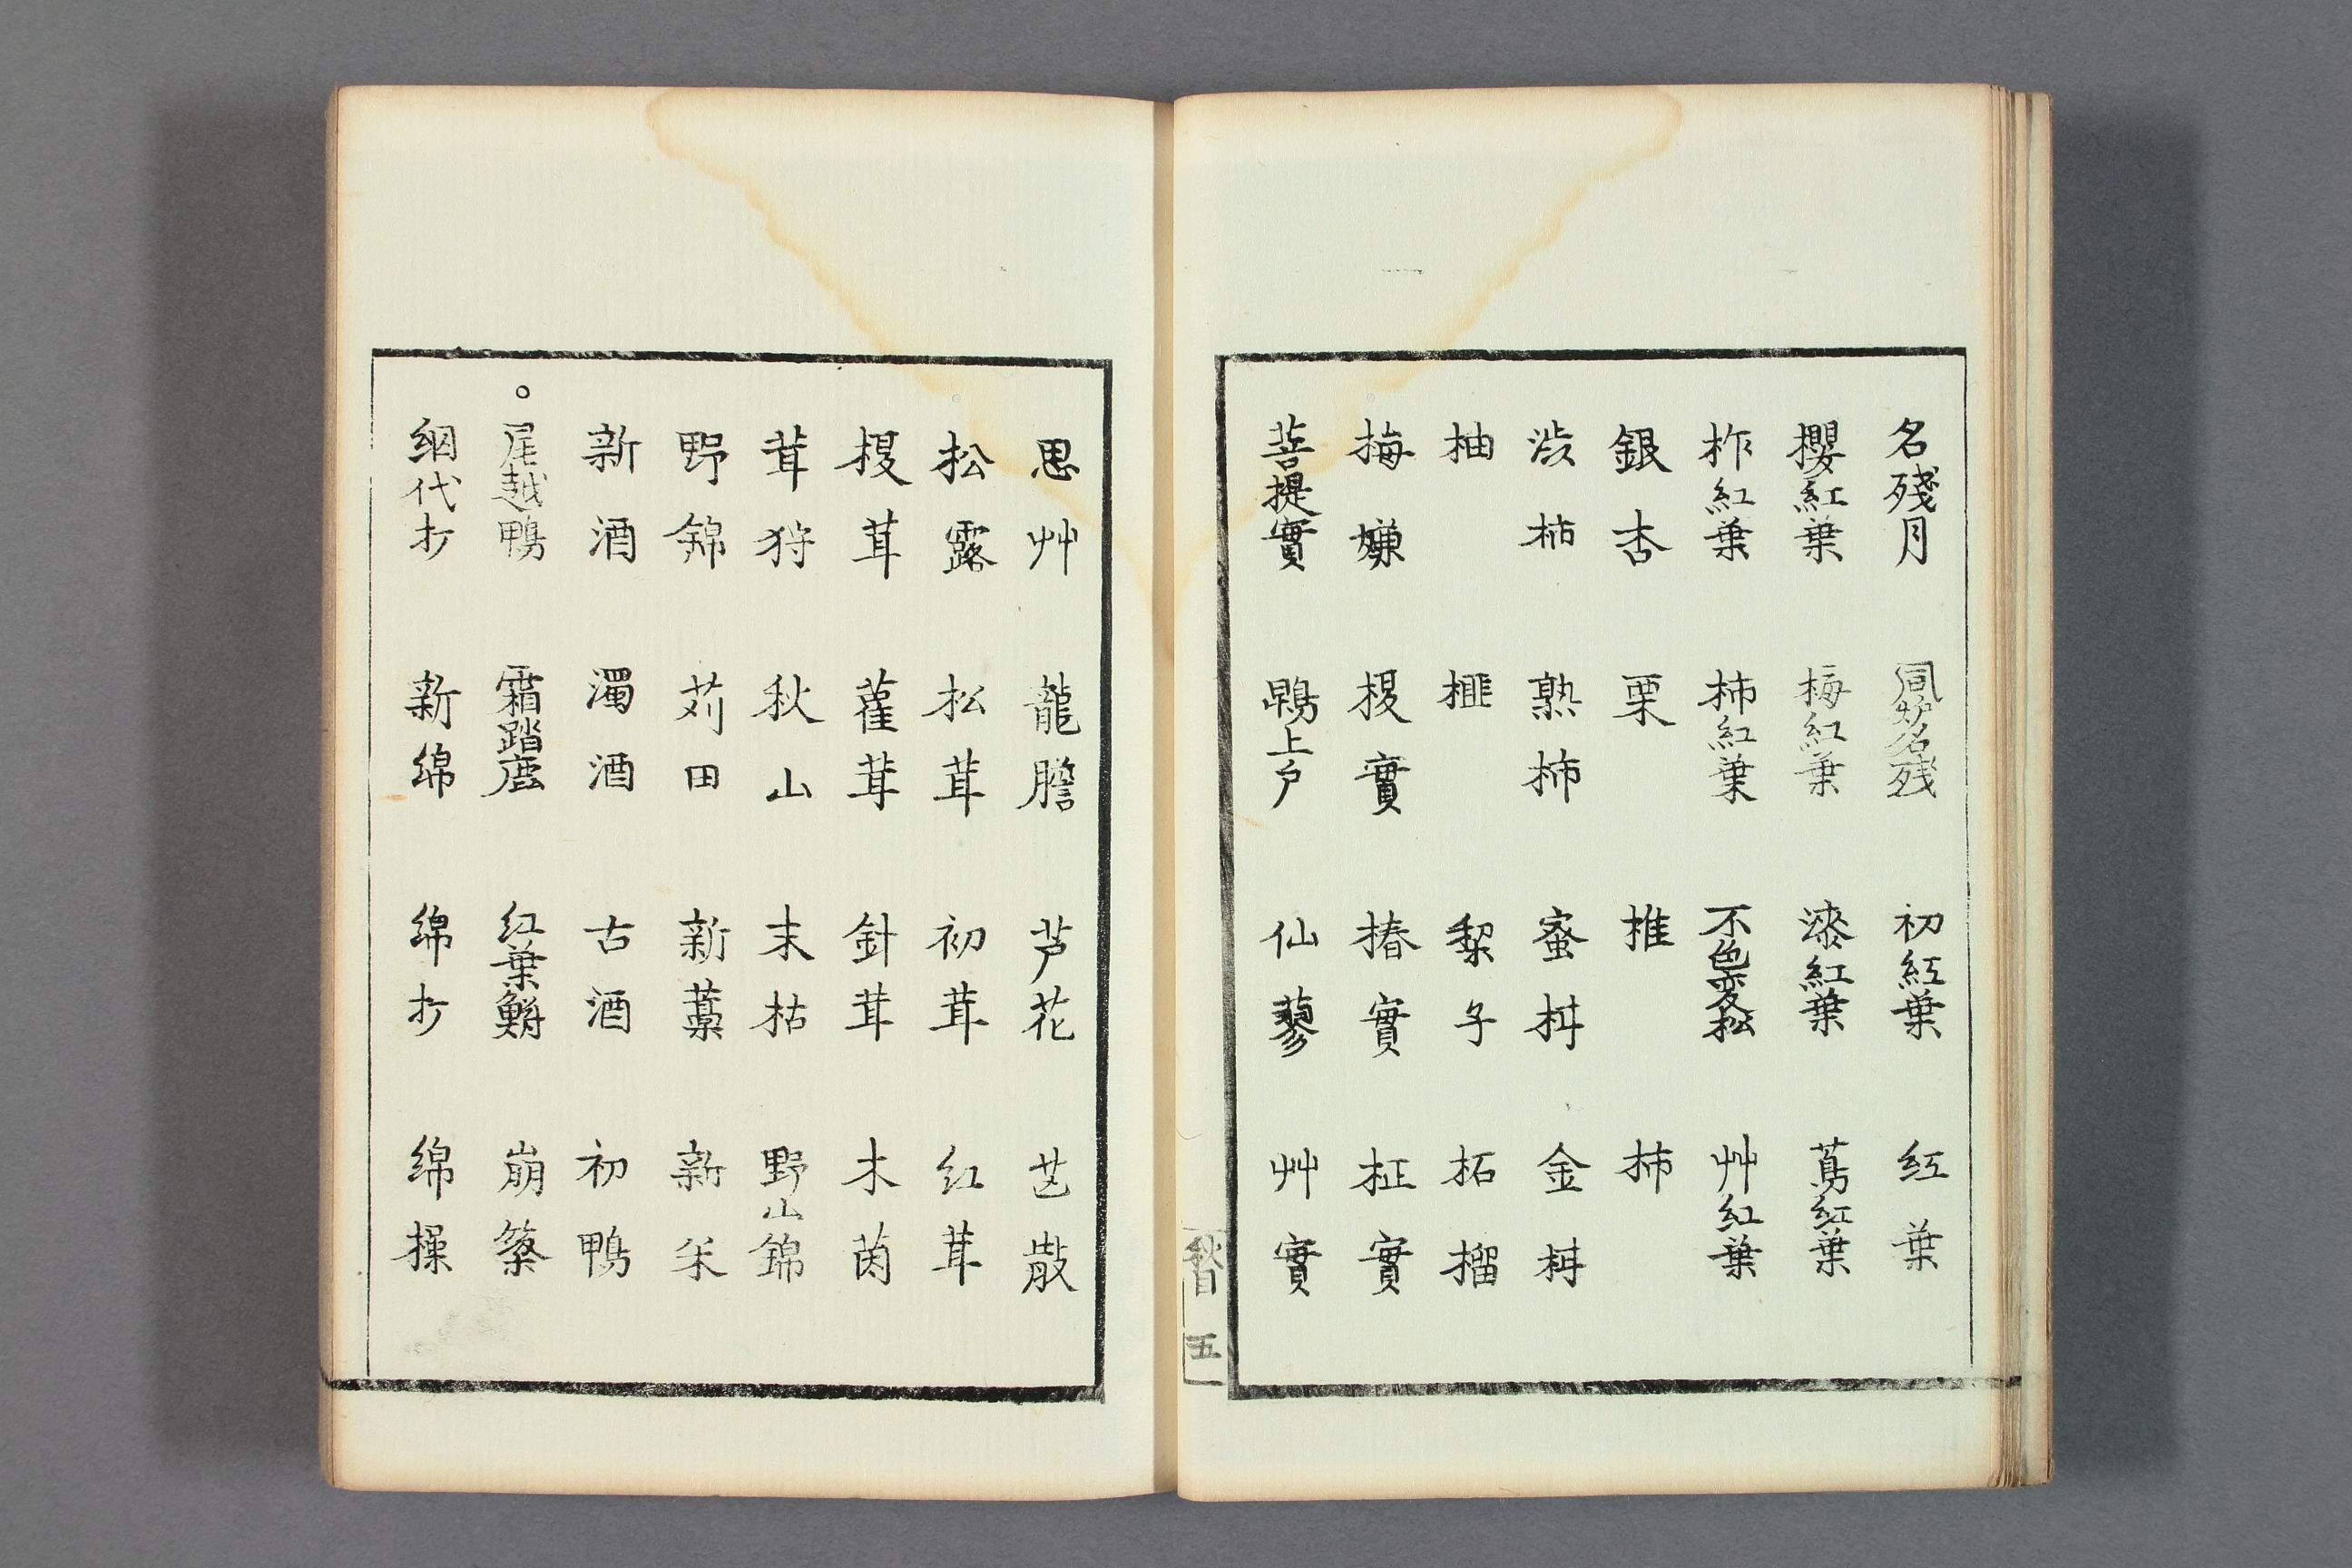 名殘月　風炉名残　初紅葉　紅葉
櫻紅葉　梅紅葉　漆紅葉　蔦紅葉
柞紅葉　柿紅葉　不色変松　艸紅葉
銀杏　栗　椎　柿
渋柿　熟柿　蜜柑　金柑
柚　榧　梨子　柘榴
梅嫌　榎實　椿實　枳實
菩提實　鵯上戸　仙蓼　艸實
秋目　五
思艸　龍膽　芦花　芒散
松露　松茸　初茸　紅茸
榎茸　雚茸　針茸　木茵
茸狩　秋山　末枯　野山錦
野錦　苅田　新藁　新米
新酒　濁酒　古酒　初鴨
。尾越鴨　霜踏鹿　紅葉鮒　崩簗
網代打　新綿　綿打　綿操